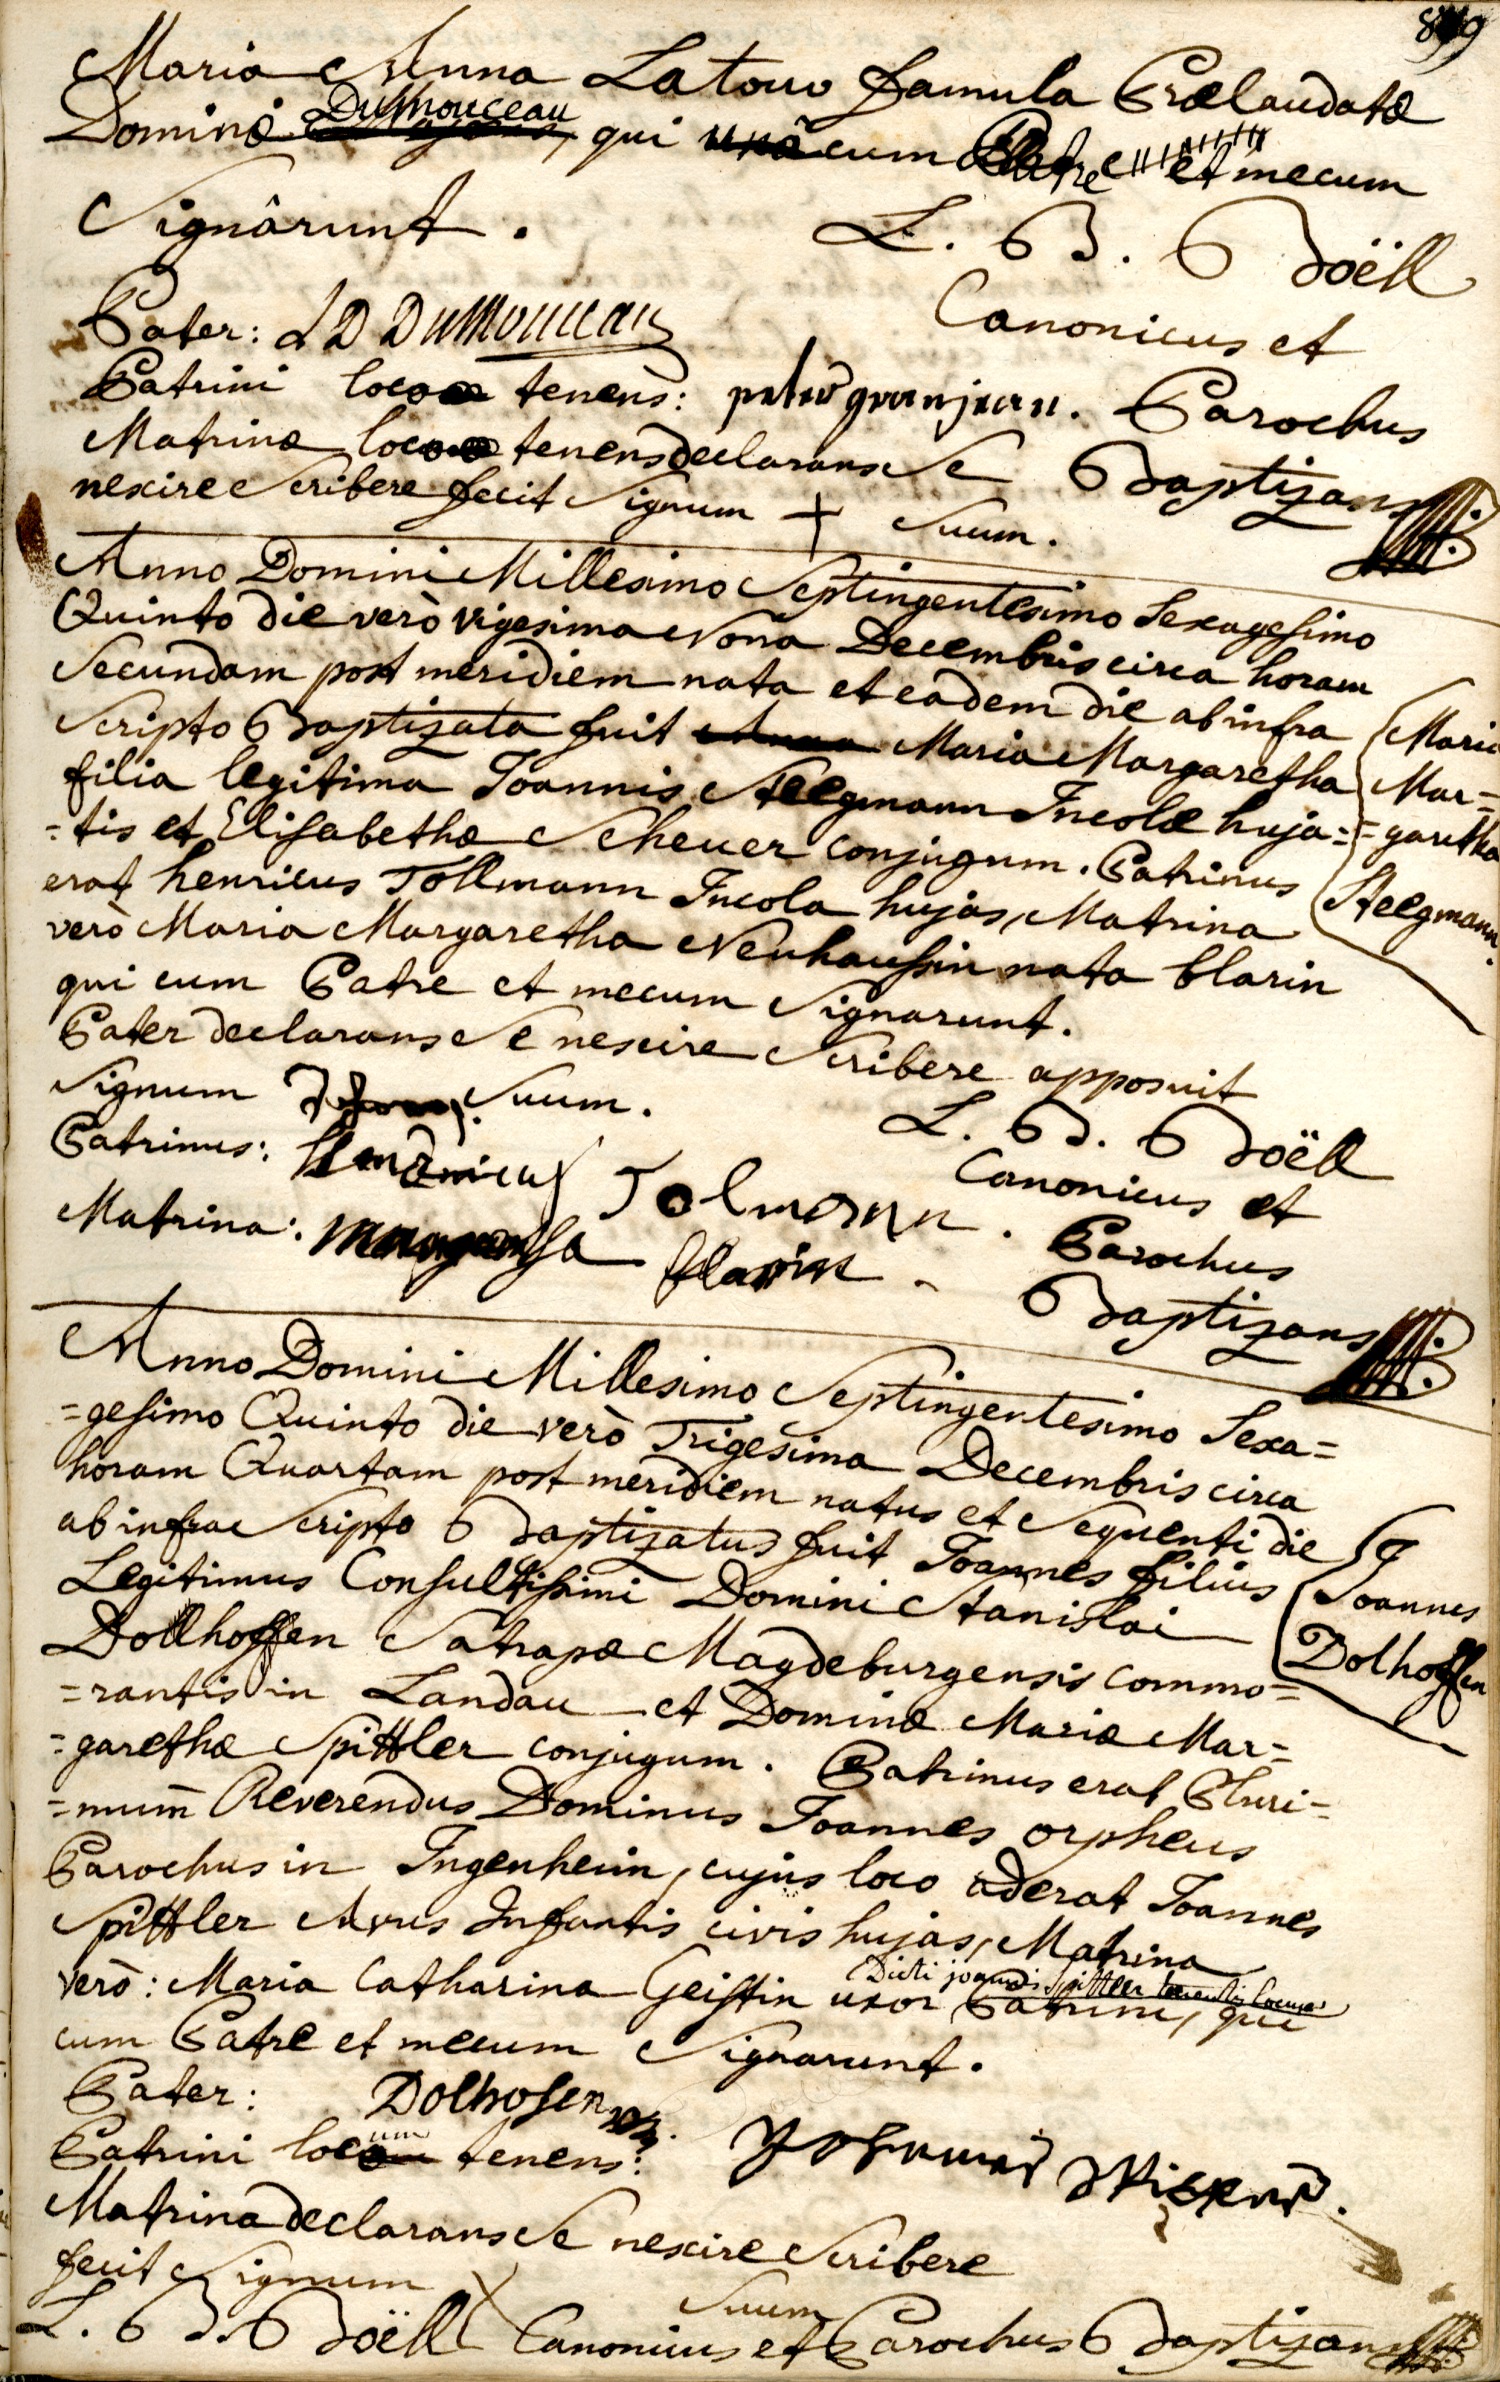 Maria Anna Latour famula Prælaudatæ
Dominæ DuMouceau, qui unâ cum Patre et mecum
Signârunt.
L. B. Boëll
Canonicus et
Parochus
Baptizans
Pater: LD DuMouceau
Patrini loco tenens: peter granjean.
Matrinæ loco tenens declarans Se
nescire Scribere fecit Signum + Suum.
Anno Domini Millesimo Septingentesimo Sexagesimo
Quinto die verò vigesima Nona Decembris circa horam
Secundam post meridiem nata et eadem die ab infra
Scripto Baptizata fuit Anna Maria Margaretha
filia legitima Joannis Steegmann Incolæ huja=
=tis et Elisabethæ Scheuer conjugum. Patrinus
erat henricus Tollmann Incola hujas, Matrina
verò Maria Margaretha Neuhaussin nata blarin
qui cum Patre et mecum Signarunt.
Maria
Mar=
=garetha
Steegmann.
Pater declarans Se nescire Scribere apposuit
Signum Suum.
L. B. Boëll
Canonicus et
Parochus
Baptizans
Patrinus: Hendricus Tolmann.
Matrina: blarin
Anno Domini Millesimo Septingentesimo Sexa=
=gesimo Quinto die verò Trigesima Decembris circa
horam Quartam post meridiem natus et Sequenti die
ab infra Scripto Baptizatus fuit Joannes filius
Legitimus Consultissimi Domini Stanislai
Dollhoffen Satrapæ Magdeburgensis commo=
=rantis in Landau et Dominæ Mariæ Mar=
=garethæ Spittler conjugum. Patrinus erat Pluri=
=mum̄ Reverendus Dominus Joannes orpheus
Parochus in Ingenheim, cujus loco aderat Joannes
Spittler Avus Infantis civis hujas, Matrina
verò: Maria Catharina Geistin uxor Dicti joannis Spittler tenentis locum Patrini, qui
cum Patre et mecum Signarunt.
Joannes
Dolhoffen
Pater: Dolhofen
Patrini locum tenens: Johannes
Matrina declarans Se nescire Scribere
fecit Signum X Suum
L. B. Boëll Canonicus et Parochus Baptizans